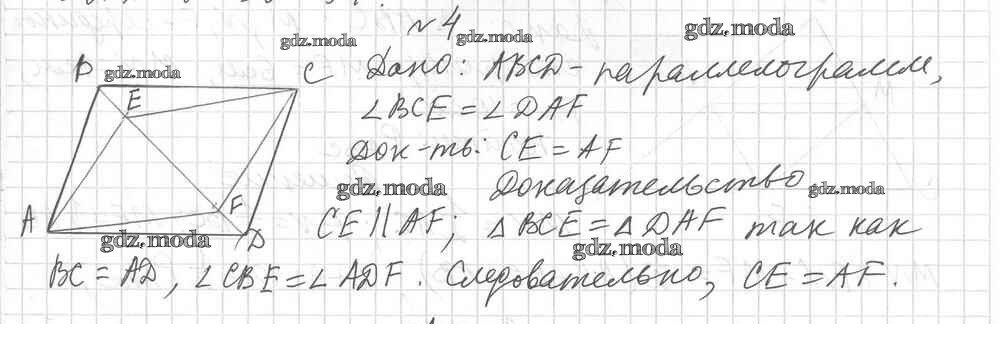 № 4
gdz.moda
gdz.moda
gdz.moda
B gdz.moda C Дано: ABCD - параллелограмм,
E
∠BCE = ∠DAF
Док-ть: CE = AF
gdz.moda Доказательство gdz.moda
A F D CE || AF; △BCE = △DAF так как
gdz.moda gdz.moda
BC = AD, ∠CBE = ∠ADF. Следовательно, CE = AF.